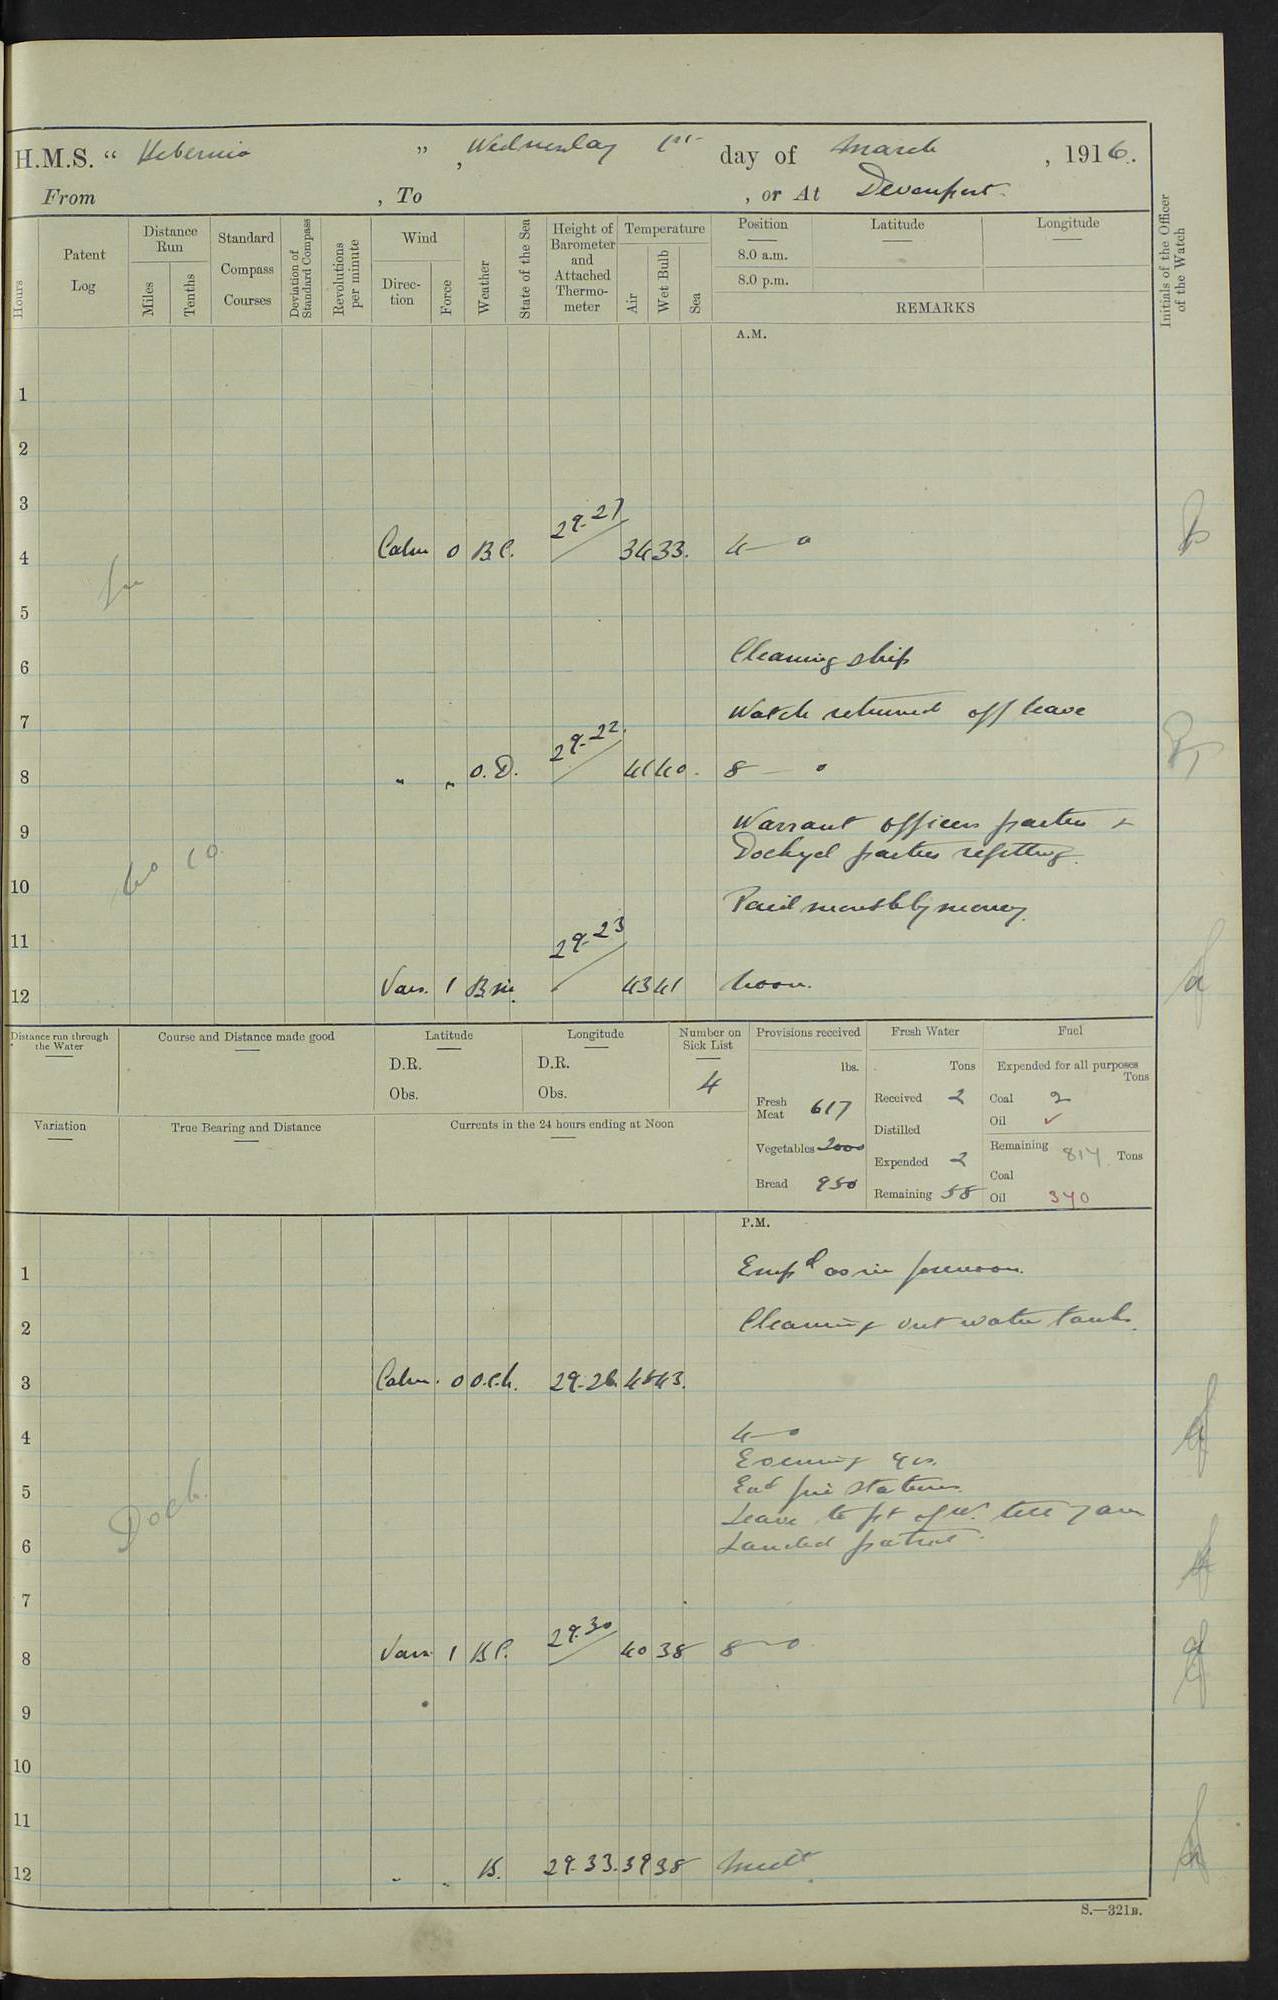 H.M.S. " Hibernia " , Wednesday 1st day of March , 1916.
From , To , or At Devonport.
Hours
Patent Log
Distance Run
Miles
Tenths
Standard Compass Courses
Deviation of Standard Compass
Revolutions per minute
Wind
Direction
Force
Weather
State of the Sea
Height of Barometer and Attached Thermometer
Temperature
Air
Wet Bulb
Sea
Position
8.0 a.m.
8.0 p.m.
Latitude
Longitude
REMARKS
Initials of the Officer of the Watch
A.M.
1
2
3
4 Calm 0 B.C. 29.27 34 33. 4—0
5
6 Cleaning ship
7 Watch returned off leave
8 " " O.D. 29.22. 41 40. 8—0
9 Warrant officers parties &
Dockyd parties refitting.
10 Paid monthly money.
11
12 Vars. 1 B.m. 29.23 43 41 Noon.
Distance run through the Water
Course and Distance made good
Latitude
D.R.
Obs.
Longitude
D.R.
Obs.
Number on Sick List
4
Provisions received
lbs.
Fresh Meat 617
Vegetables 2000
Bread 950
Fresh Water
Tons
Received 2
Distilled
Expended 2
Remaining 58
Fuel
Expended for all purposes
Tons
Coal 2
Oil ✓
Remaining 814 Tons
Coal
Oil 340
Variation
True Bearing and Distance
Currents in the 24 hours ending at Noon
P.M.
1 Empd as in forenoon.
2 Cleaning out water tanks.
3 Calm. 0 O.C. 29.26 45 43.
4 4—0
Evening qrs.
5 Exd fire stations.
Leave to pt of W. till 7 am
6 Landed patrol.
Dock.
7
8 Vars. 1 B.C. 29.30 40 38 8—0
9
10
11
12 " " B. 29.33. 39 38 Midt
S.—321B.